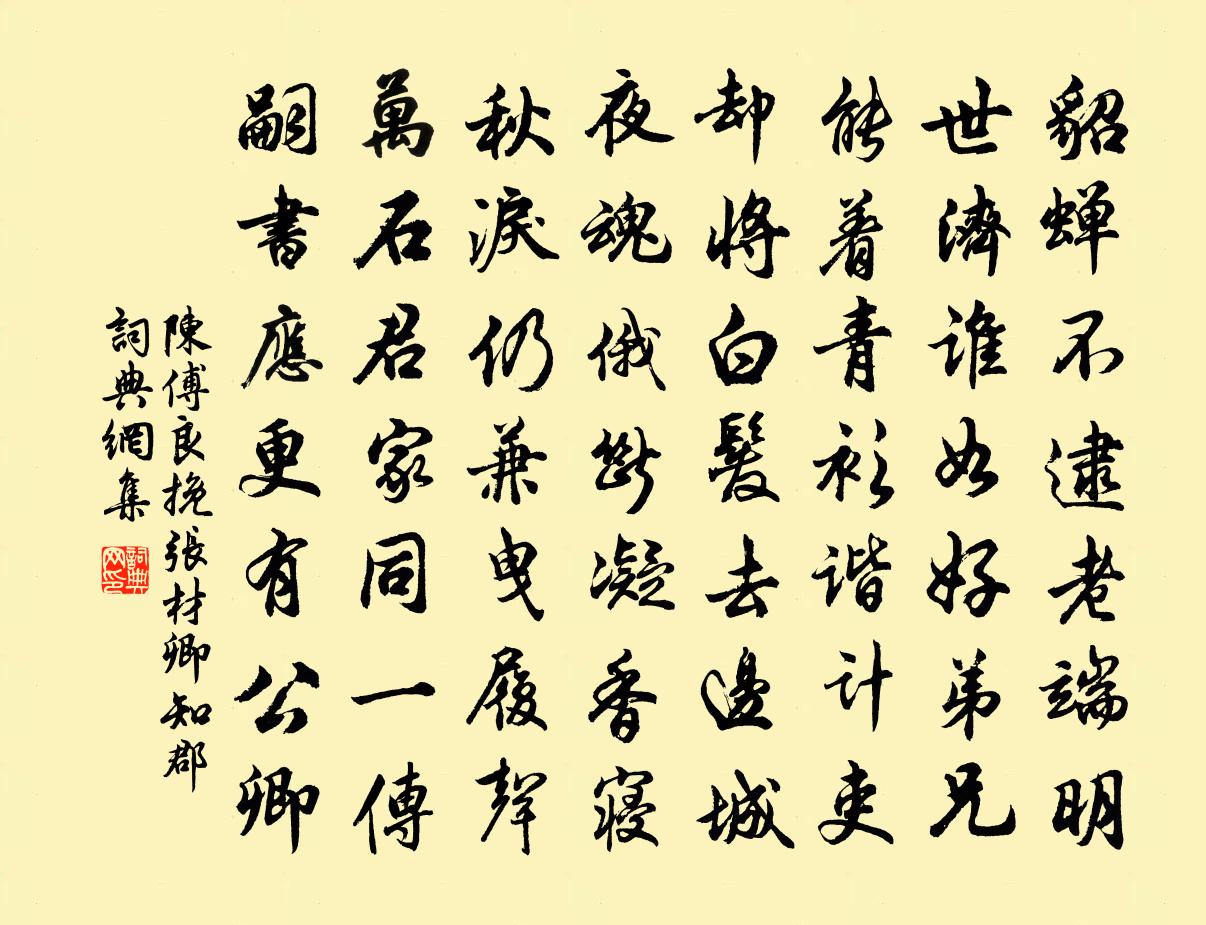 貂蝉不逮老端明
世濟誰如好弟兄
能着青衫諧计吏
却將白髮去邊城
夜魂俄斷凝香寝
秋淚仍兼曳履聲
萬石君家同一傳
嗣書應更有公卿
陳傅良挽張材卿知郡
詞典網集
詞典
网印